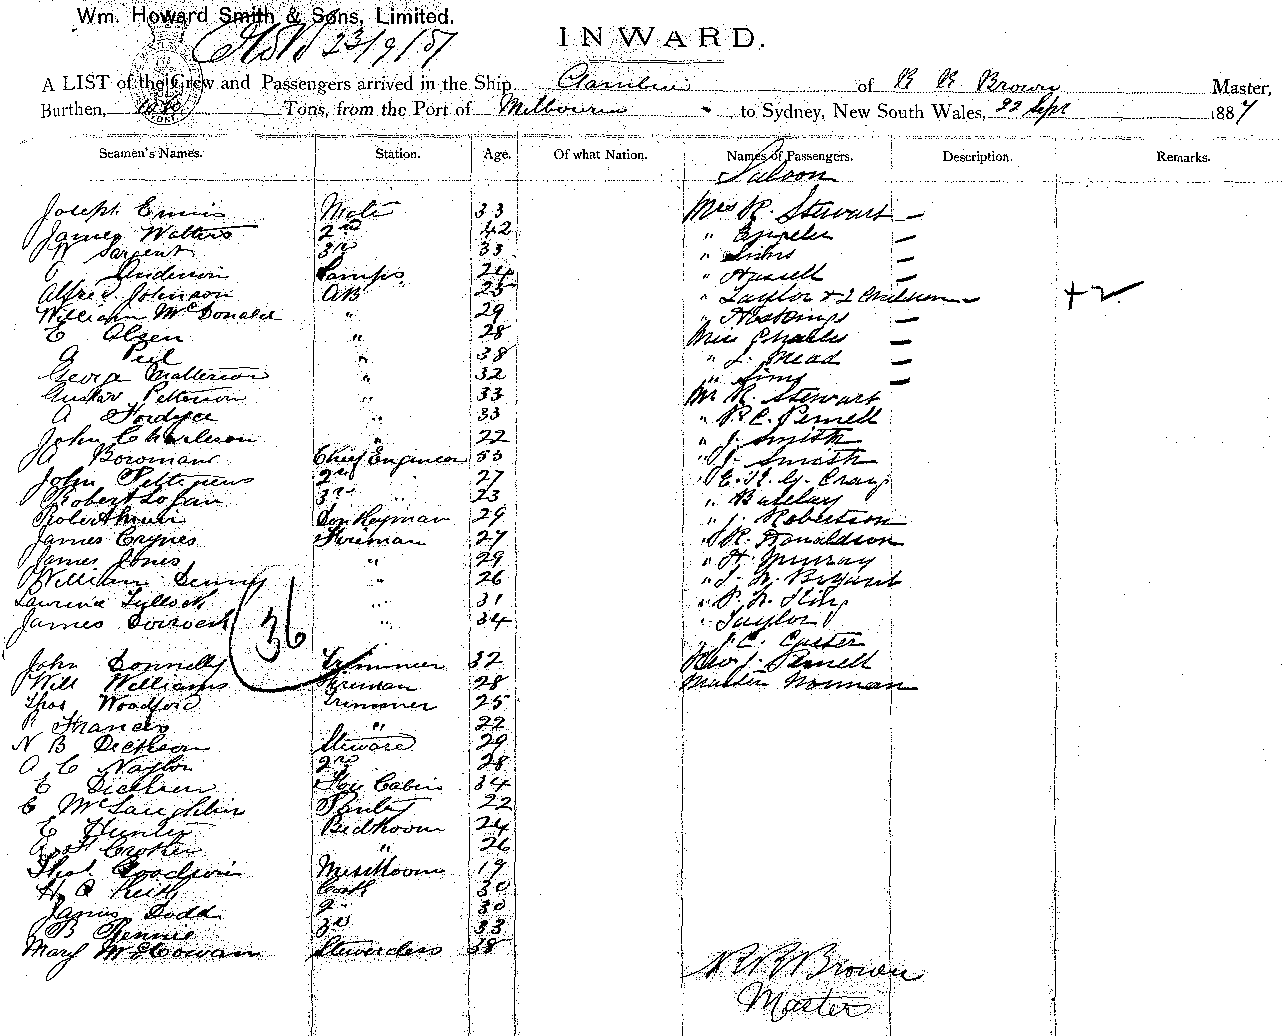 Wm. Howard Smith & Sons, Limited.
23/9/87
INWARD.
A LIST of the Crew and Passengers arrived in the Ship of R R Brown Master,
Burthen, Tons, from the Port of Melbourne to Sydney, New South Wales, 22 Sept 1887
Seamen's Names. Station. Age. Of what Nation. Names of Passengers. Description. Remarks.
Saloon
Joseph Ennis Mate 33 Mrs R. Stewart
James Walters 2nd 42 "
W Sargent 3rd 33 " Sims
Anderson Lamps 24 " Hassell
Alfred Johnson AB 25 " Taylor & 2 Children + 2
William McDonald " 29 " Hoskings
E Olsen " 28 Miss Charles
G Peel " 38 " J. Mead
George Matterson " 32 " Sims
Gustav Petterson " 33 Mr R. Stewart
A Fordyce " 33 " R. C. Pennell
John Charleson " 22 " J. Smith
A Bowman Chief Engineer 33 " J. Smith
John Pettigrew 2nd 27 " E. H. G. Craig
Robert Logan 3rd " 23 " Barclay
Robert Donkeyman 29 " J. Robertson
James Crynes Fireman 27 " R. Donaldson
James Jones " 29 " H. Murray
William Denny " 26 " Bryant
Tullock " 31 "
James " 34 " Taylor
36
" J. C. Carter
John Donnelly Trimmer 32 Rev J. Pennell
Will Williams Fireman 28 Master Norman
Thos Woodford Trimmer 25
P Francis " 22
N B Dickson Steward 29
A C Naylor 2nd 28
E Dickson Fore Cabin 34
C McLaughlin Pantry 22
E Hunter Bedroom 24
Crocker " 26
Thos. Goodwin Messroom 19
H. C Keith Cook 30
James Dodd 2nd 30
B Rennie 3rd 33
Mary McGowan Stewardess 38
R R Brown
Master